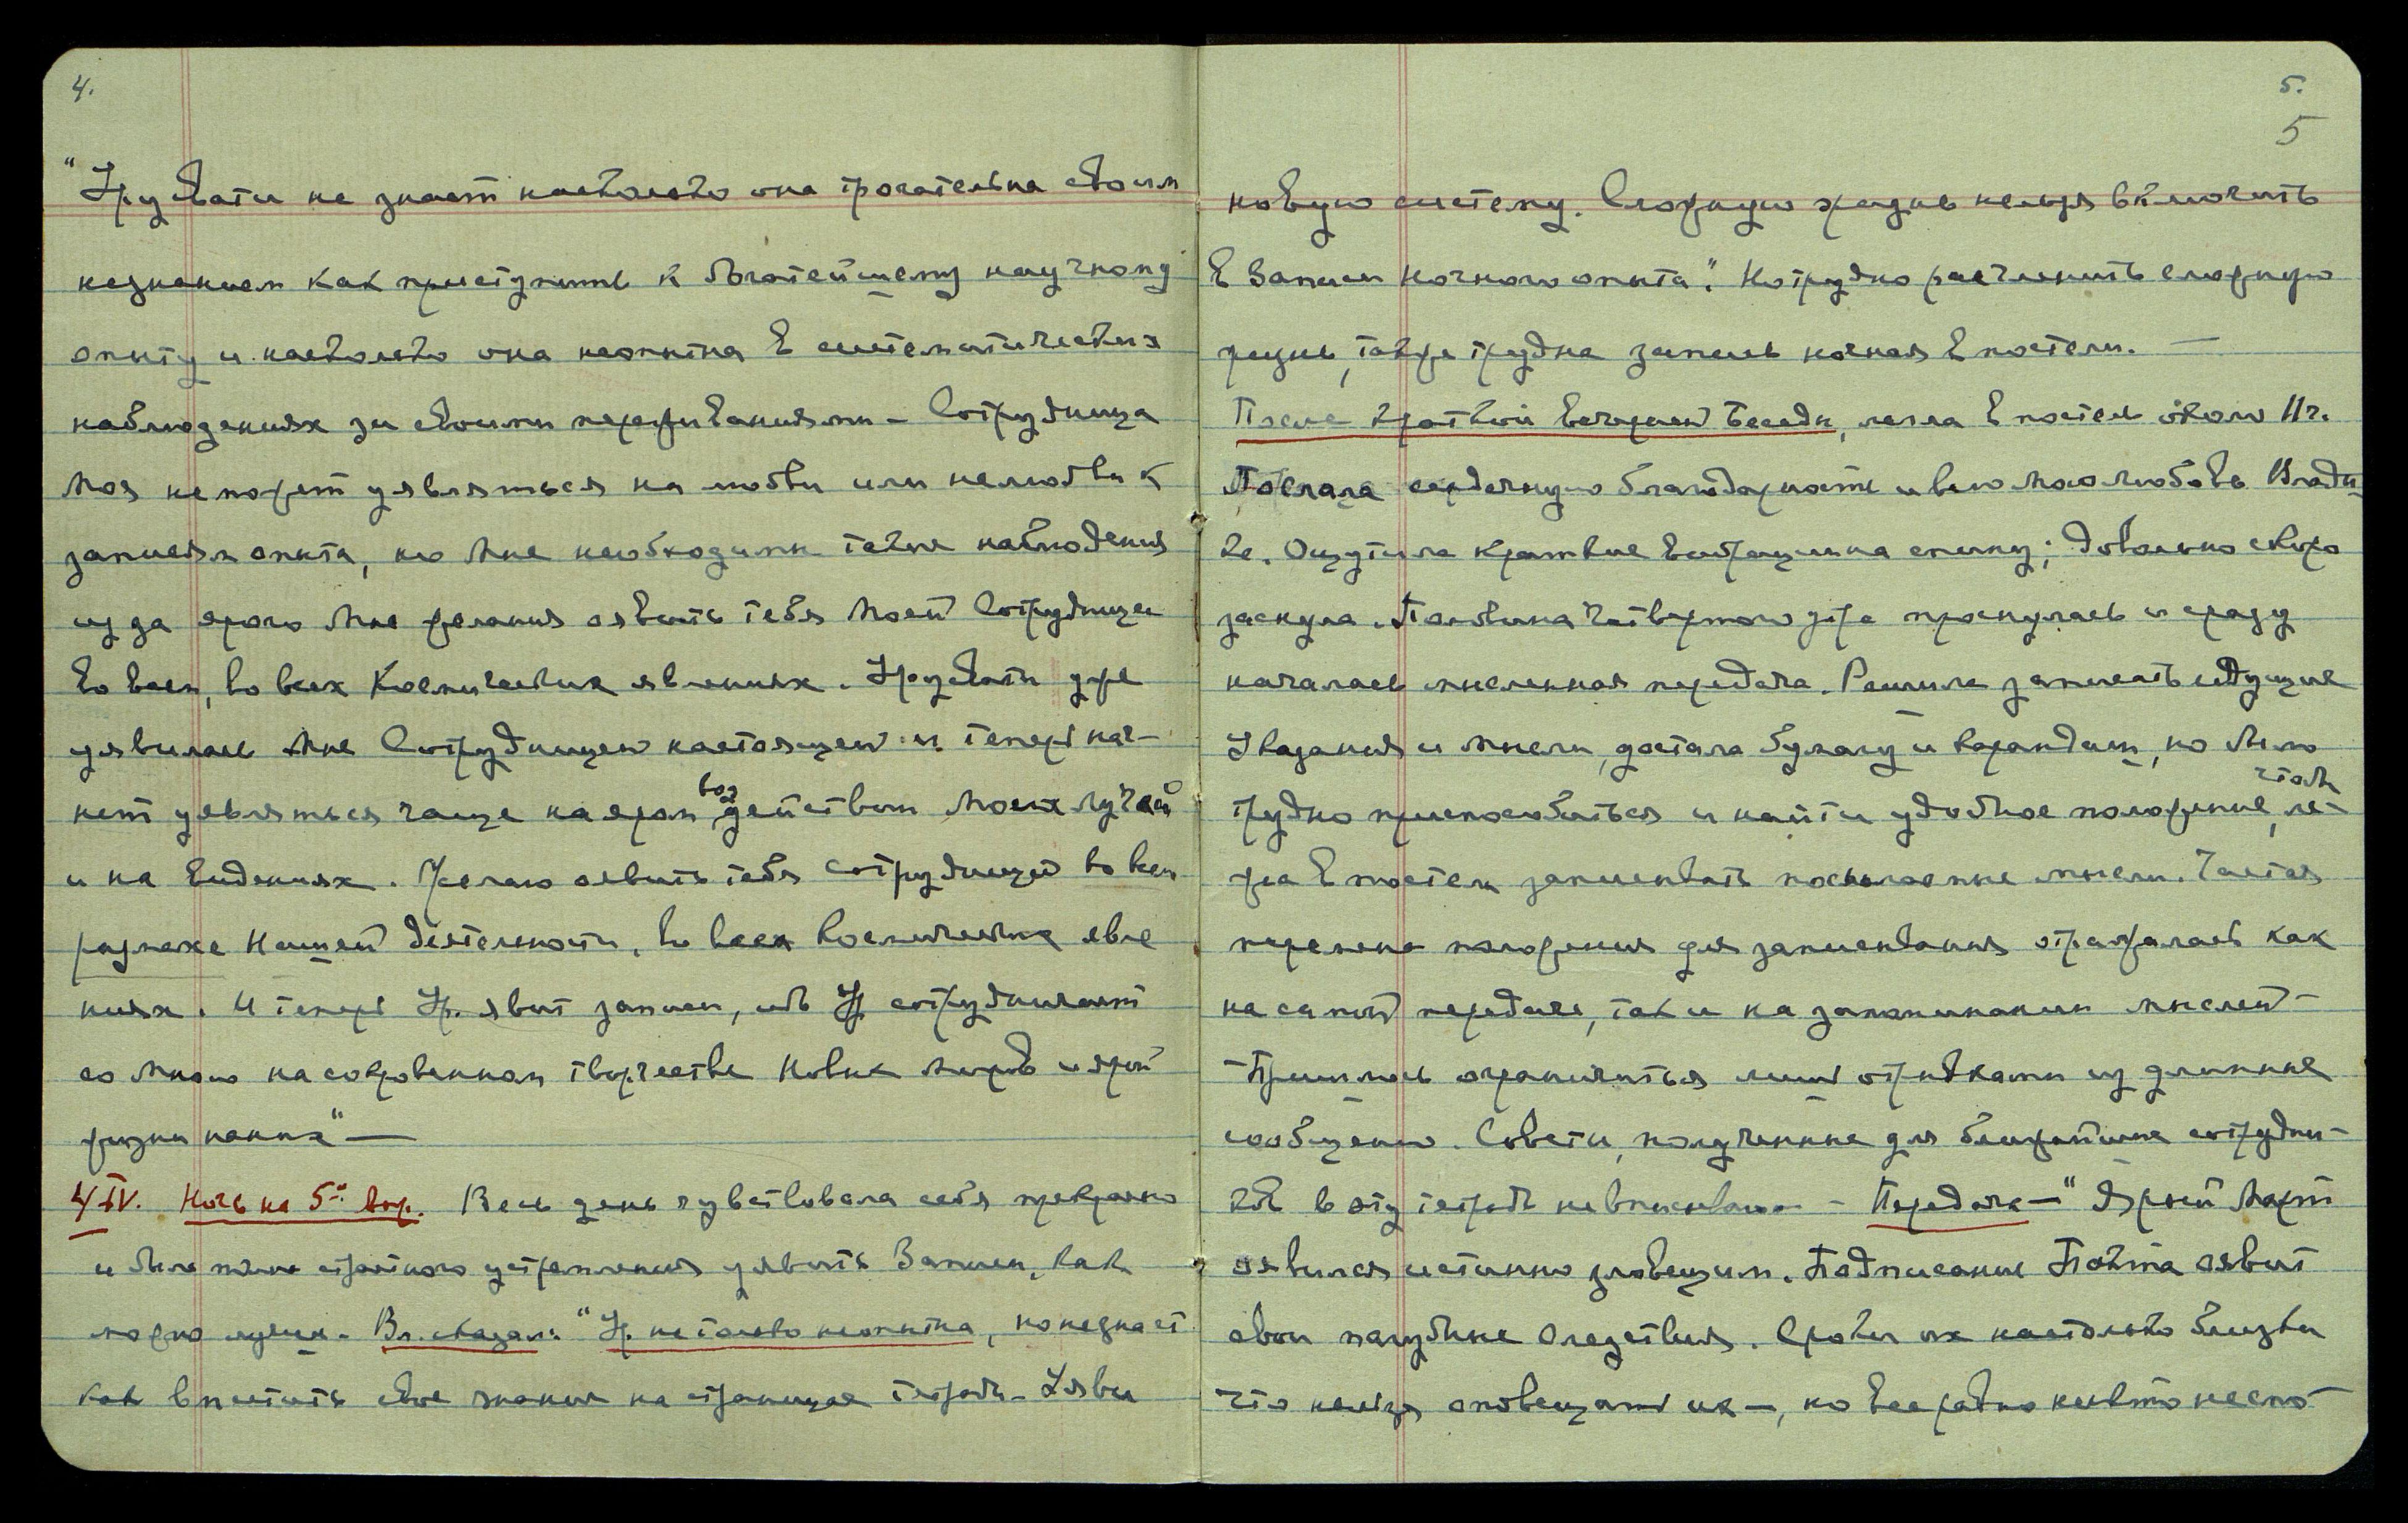 4.
"Урусвати не знает насколько она трогательна своим
незнанием как приступить к богатейшему научному
опыту и насколько она неопытна в систематических
наблюдениях за своими переживаниями – Сотрудница
Моя не может уявляться на любви или нелюбви к
записям опыта, но Мне необходимы такие наблюдения
из за ярого Мне желания оявить тебя Моей Сотрудницей
во всем, во всех Космических явлениях. Урусвати уже
уявилась Мне Сотрудницей настоящей и теперь нач-
нет уявляться чаще на яром воздействии Моих Лучей
и на видениях. Желаю оявить тебя сотрудницей во всем
размахе Нашей деятельности, во всех космических явле
ниях. И теперь Ур. явит записи, ибо Ур сотрудничает
со Мною на сокровенном творчестве Новых Миров и ярой
жизни наших" —
4/IV. Ночь на 5ое Апр. Весь день чувствовала себя прекрасно
и была полна страстного устремления уявить Записи, как
можно лучше. Вл. сказал: "Ур. не только неопытна, но не знает
как вместить свое знание на страницах тетради – Уяви
5.
5
новую систему. Сложную жизнь нельзя включить
в Записи ночного опыта". Но трудно расчленить сложную
жизнь, также трудна запись ночная в постели. —
После краткой вечерней Беседы, легла в постель около 11ч.
Послала сердечную благодарность и всю мою любовь Влады-
ке. Ощутила краткие вибрации на спину; довольно скоро
заснула. Половина четвертого утра проснулась и сразу
началась мысленная передача. Решила записать идущие
Указания и мысли, достала бумагу и карандаш, но было
трудно приспособиться и найти удобное положение, чтобы ле-
жа в постели записывать посылаемые мысли. Частая
перемена положения для записывания отражалась как
на самой передаче, так и на запоминании мыслей –
Пришлось ограничиться лишь отрывками из длинных
сообщений. Советы, полученные для ближайших сотрудни-
ков в эту тетрадь не вписываю – Передача – "Ярый Март
оявился истинно зловещим. Подписание Пакта оявит
свои пагубные следствия. Сроки их настолько близки
что нельзя оповещать их –, но все равно никто не спо-